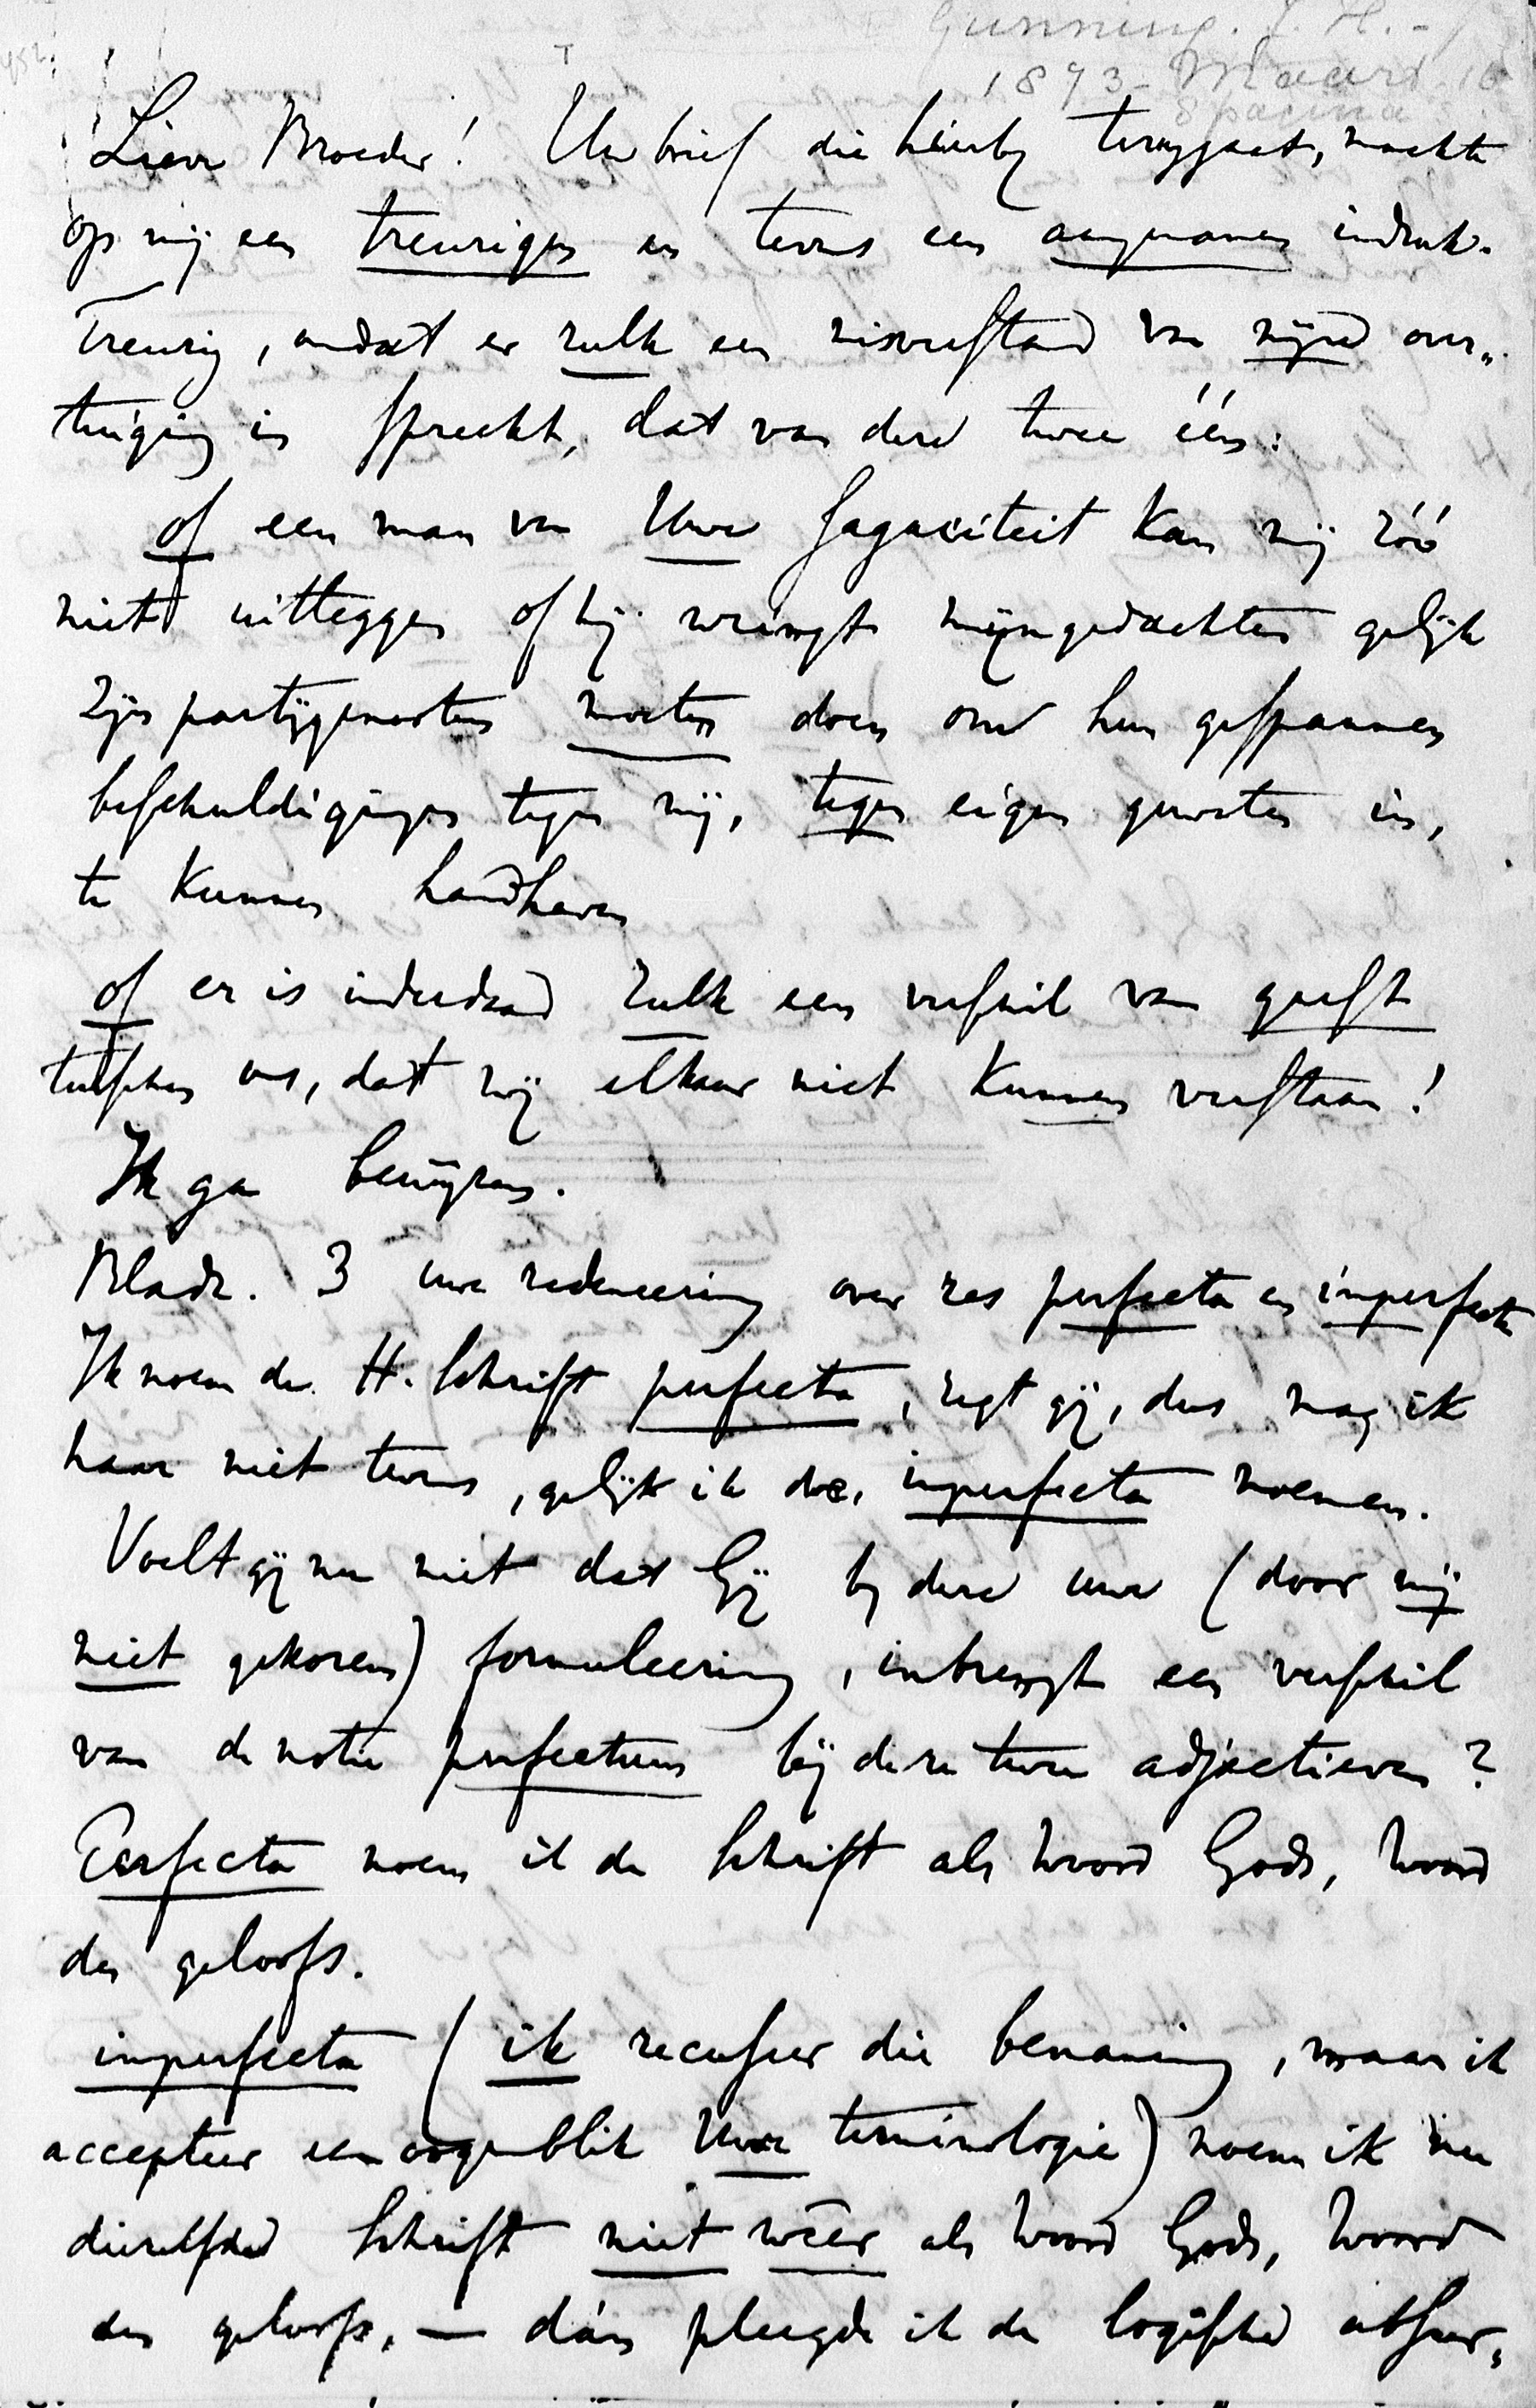 Gunning. J. H. -
1873 - Maart 16
8 pagina
Lieve Broeder! Uw brief die hierby teruggaat, maakte
op mij een treurigen en tevens een aangenamen indruk.
Treurig, omdat er zulk een misverstand van mijne over„
tuiging in spreekt, dat van deze twee één:
of een man van Uwe sagaciteit kan mij zóó
niet uitleggen of hij wringt mijn gedachten gelijk
zijn partijgenooten moeten doen om hun gespannen
beschuldigingen tegen mij, tegen eigen geweten in,
te kunnen handhaven
of er is inderdaad zulk een verschil van geest
tusschen ons, dat wij elkaar niet kunnen verstaan!
Ik ga bewijzen.
Bladz. 3 uwe redeneering over res perfecta en imperfecta
Ik noem de H. Schrift perfecta, zegt gij, dus mag ik
haar niet tevens, gelijk ik doe, imperfecta noemen.
Voelt gij nu niet dat Gij by deze uwe (door mij
niet gekozen) formuleering, inbrengt een verschil
van de notie perfectum bij deze twee adjectieven?
Perfecta noem ik de Schrift als Woord Gods, Woord
des geloofs.
imperfecta (ik recuseer die benaming, maar ik
accepteer een oogenblik Uwe terminologie) noem ik nu
diezelfde Schrift niet wéér als Woord Gods, Woord
des geloofs, — dán pleegde ik de logische absur„